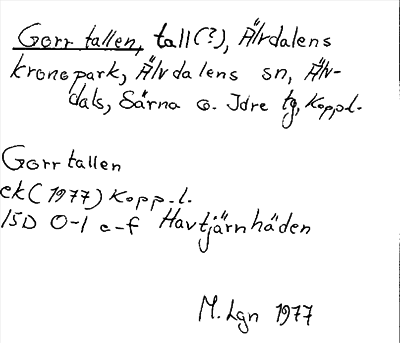 Gorrtallen, tall(?), Älvdalens
kronopark, Älvdalens sn, Älv-
dals, Särna o. Idre tg, Kopp.l.
Gorrtallen
ek(1977) Kopp.l.
15D 0-1 e-f Havtjärnhäden
M. Lgn 1977